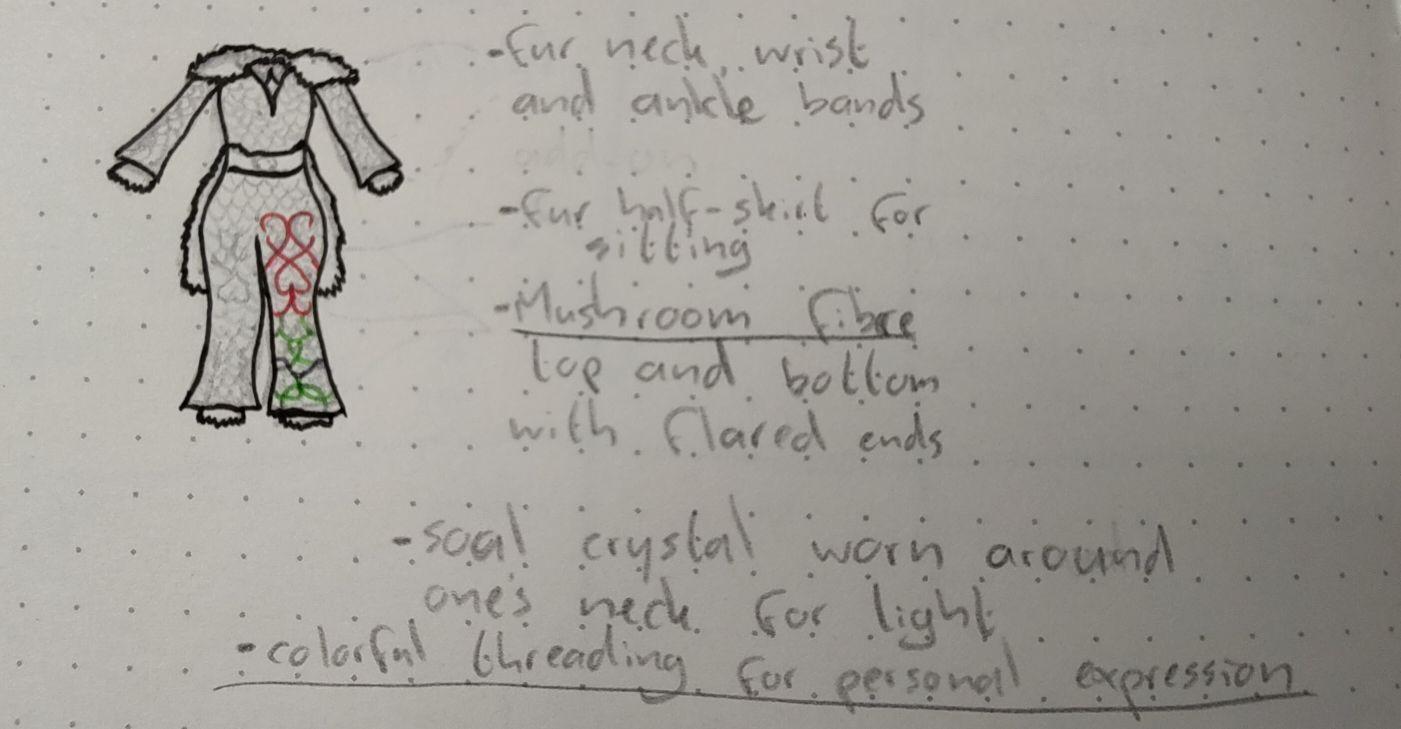 -fur neck, wrist
and ankle bands
add-on
-fur half-skirt for
sitting
-Mushroom fibre
top and bottom
with flared ends
-soal crystal worn around
one's neck for light
-colorful threading for personal expression